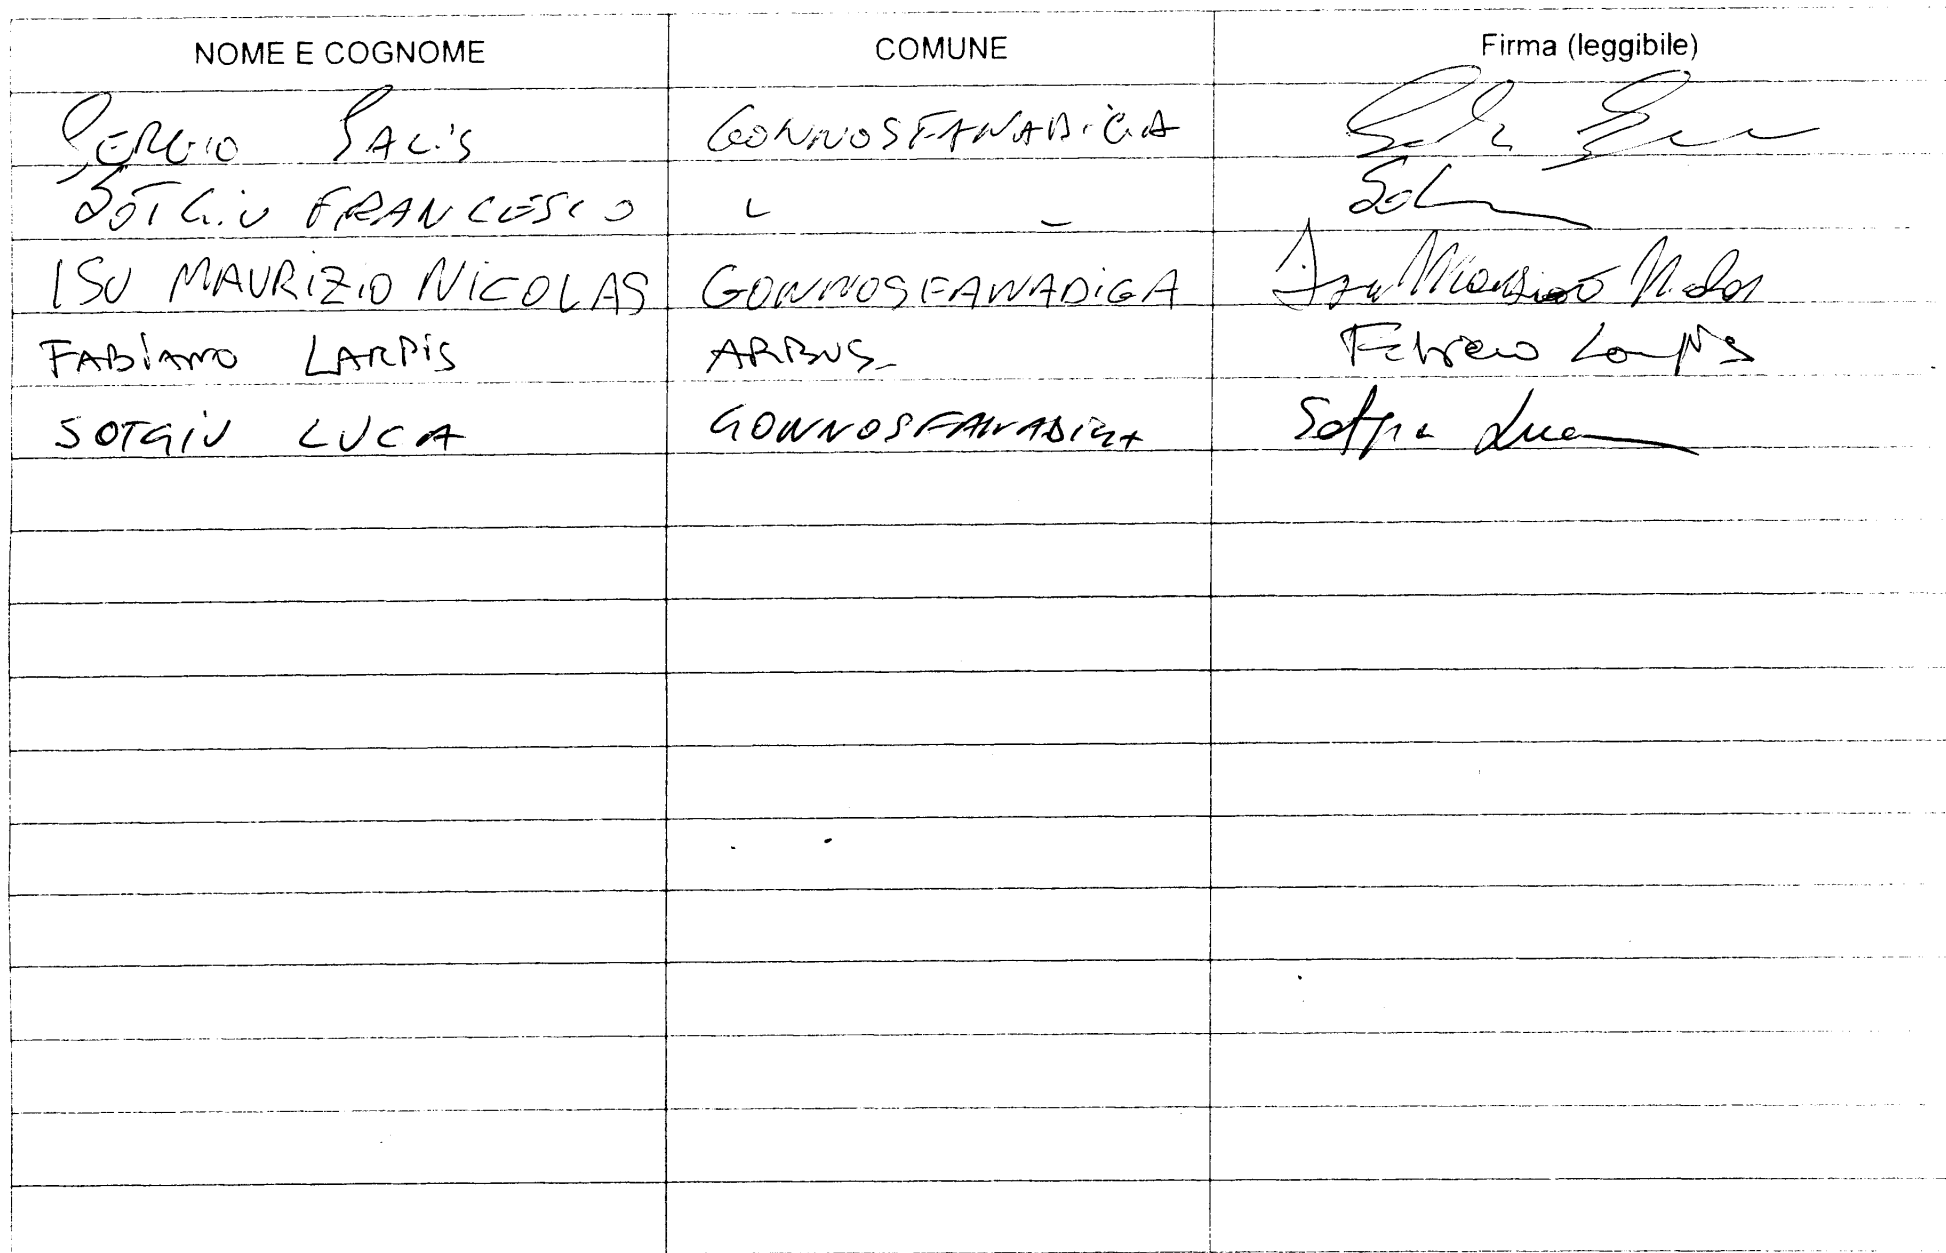 NOME E COGNOME COMUNE Firma (leggibile)
SERGIO SALIS GONNOSFANADIGA
SOTGIU FRANCESCO " "
ISU MAURIZIO NICOLAS GONNOSFANADIGA Isu Maurizio Nicolas
FABIANO LAMPIS ARBUS Fabiano Lampis
SOTGIU LUCA GONNOSFANADIGA Sotgiu Luca